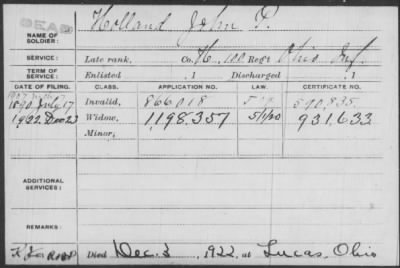 DEAD
NAME OF SOLDIER: Holland John P.
SERVICE: Late rank, Co. H, 100 Reg't Ohio Inf.
TERM OF SERVICE: Enlisted , 1 Discharged , 1
DATE OF FILING. CLASS. APPLICATION NO. LAW. CERTIFICATE NO.
1890 July 17 Invalid, 866018 590,835
1922 Dec 23 Widow, 1198,357 5/1/20 931,633
Minor,
ADDITIONAL SERVICES:
REMARKS:
Died Dec. 3, 1922, at Lucas, Ohio